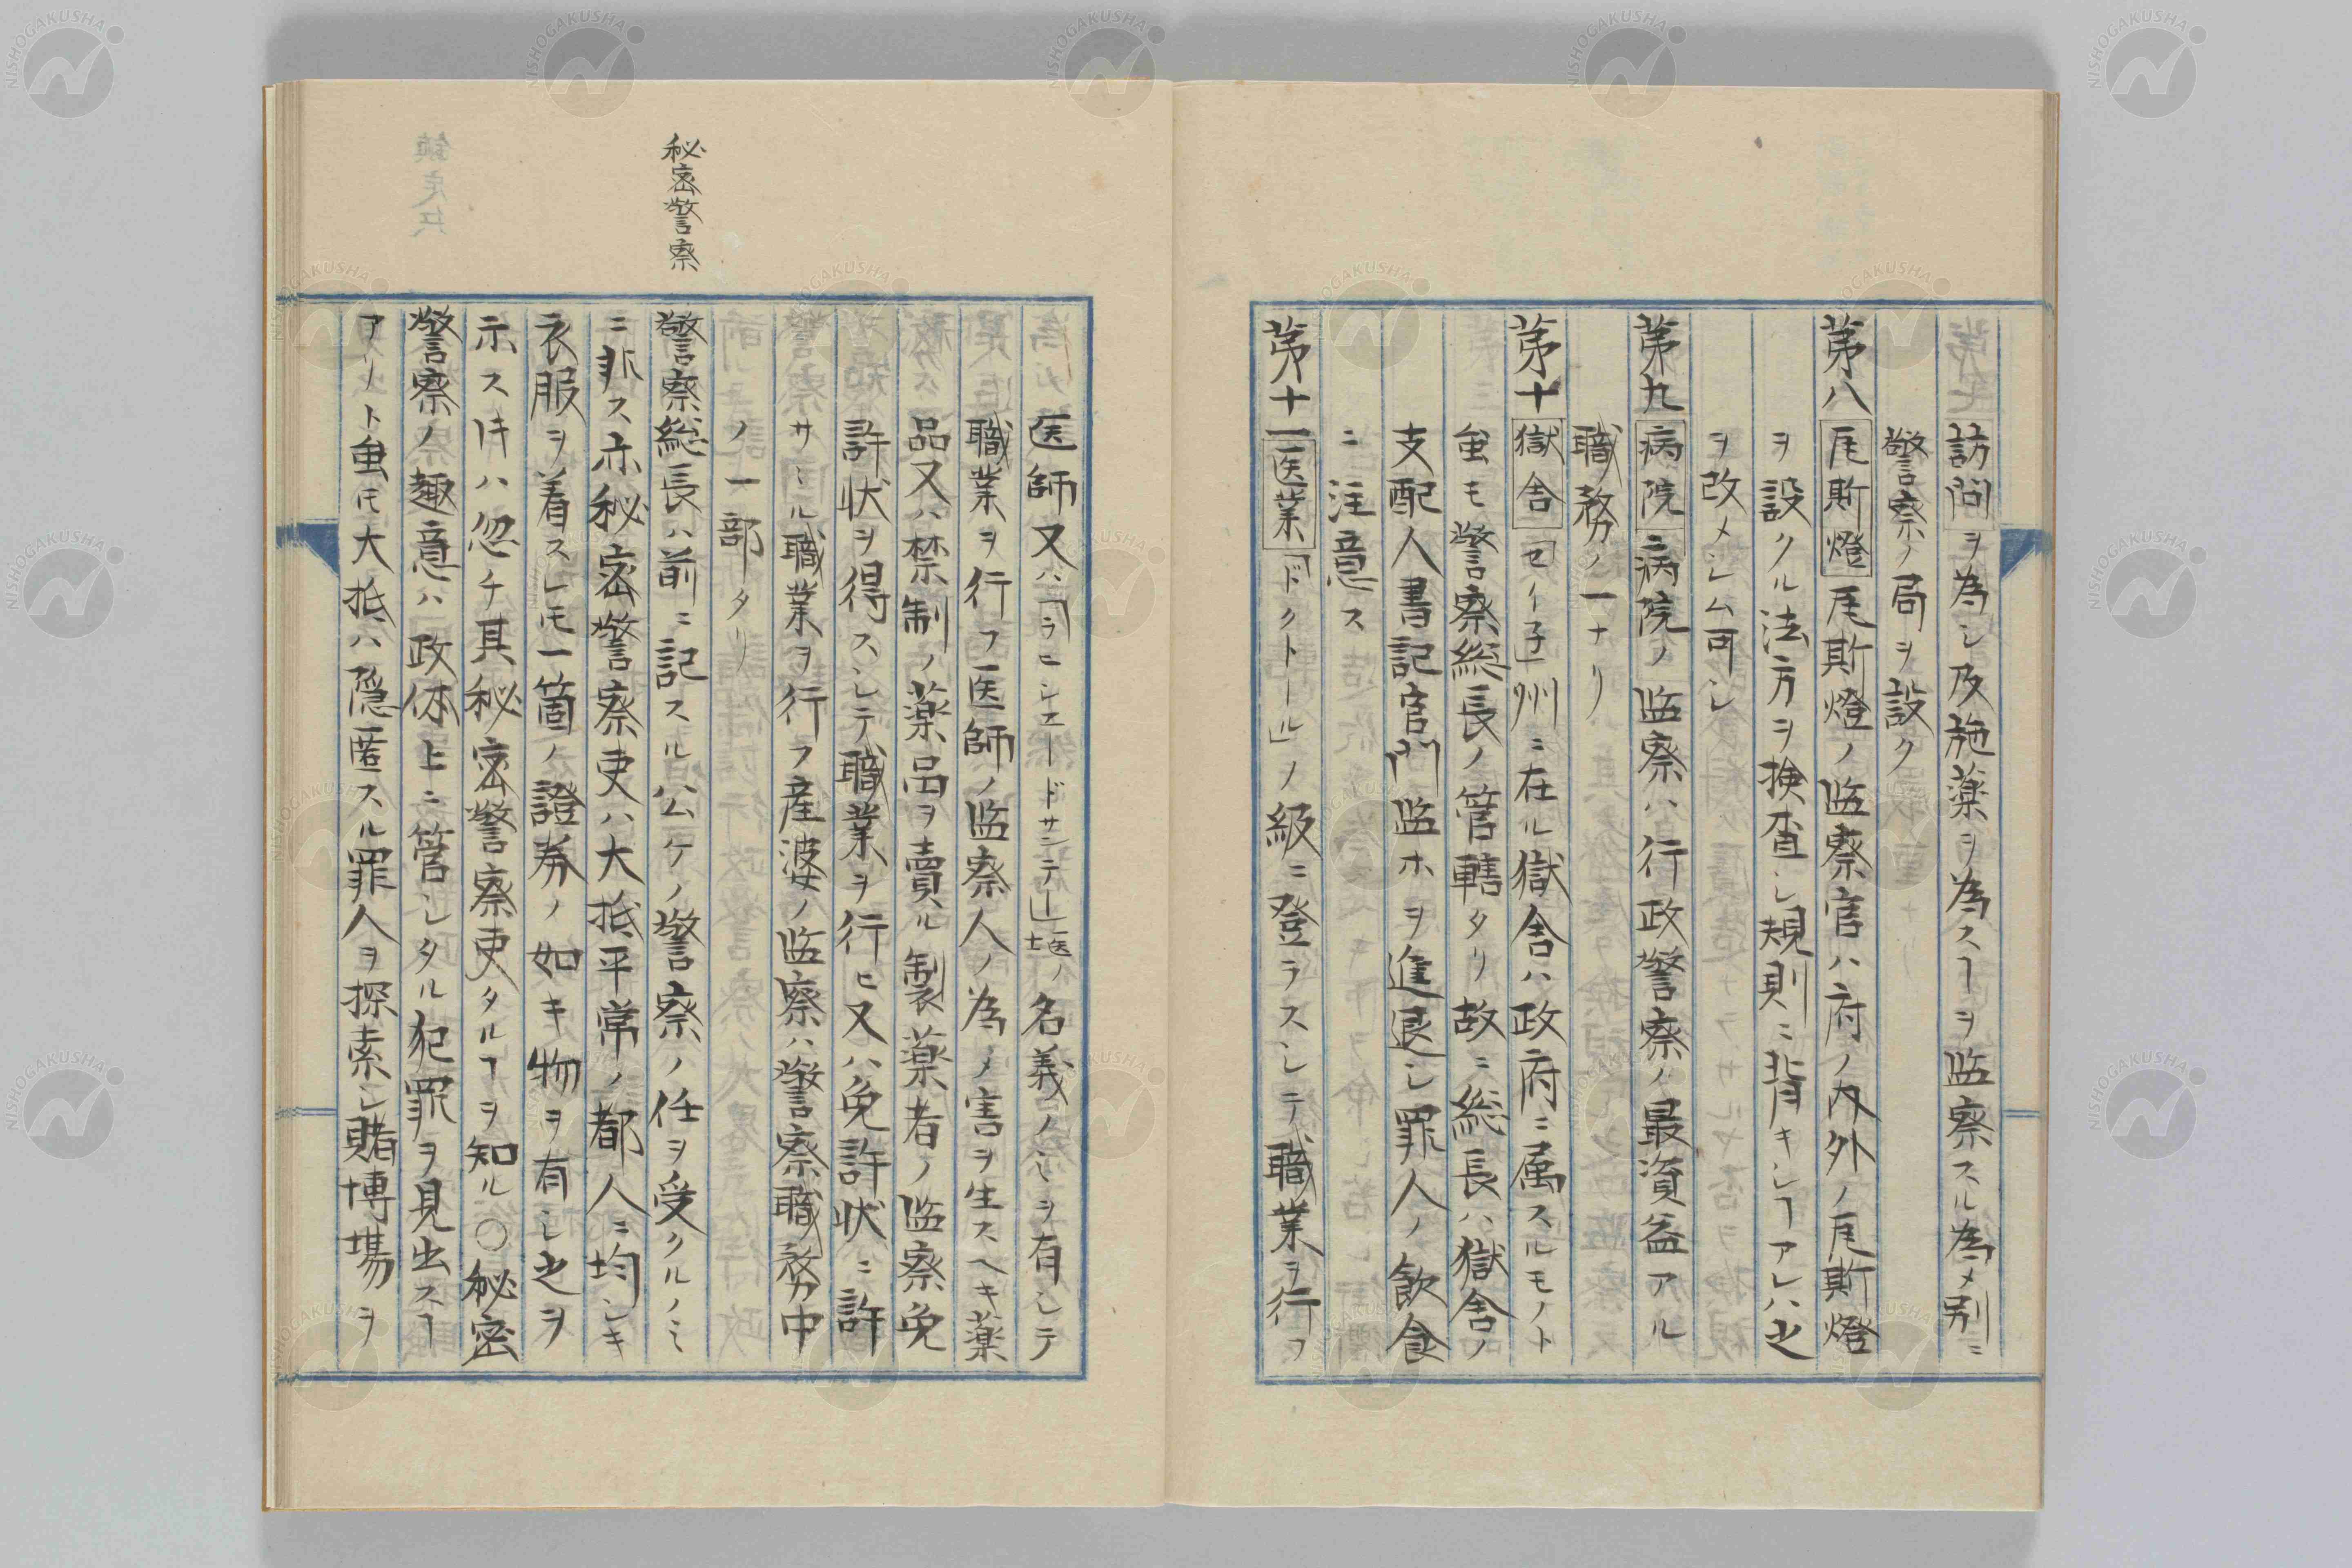 訪問ヲ為シ及施薬ヲ為スヿヲ監察スル為メ別ニ
警察ノ局ヲ設ク
第八瓦斯燈瓦斯燈ノ監察官ハ府ノ内外ノ瓦斯燈
ヲ設クル法方ヲ検査シ規則ニ背キシヿアレハ之
ヲ改メシム可シ
第九病院病院ノ監察ハ行政警察ノ最資益アル
職務ノ一ナリ
第十獄舎「セイ子」州ニ在ル獄舎ハ政府ニ属スルモノト
虽モ警察総長ノ管轄タリ故ニ総長ハ獄舎ノ
支配人書記官門監ホヲ進退シ罪人ノ飲食
ニ注意ス
第十一医業「ドクトール」ノ級ニ登ラスシテ職業ヲ行フ
医師又ハ「ヲヒシエードサンテー」医士ノ名義ノミヲ有シテ
職業ヲ行フ医師ノ監察人ノ為ノ害ヲ生スヘキ薬
品又ハ禁制ノ薬品ヲ賣ル製薬者ノ監察免
許状ヲ得スシテ職業ヲ行ヒ又ハ免許状ニ許
サヽル職業ヲ行フ産婆ノ監察ハ警察職務中
ノ一部タリ
秘密警察
警察総長ハ前ニ記スル公ケノ警察ノ任ヲ受クルノミ
ニ非ス亦秘密警察吏ハ大抵平常ノ都人ニ均シキ
衣服ヲ着スレ𪜈一箇ノ證券ノ如キ物ヲ有シ之ヲ
示スキハ忽チ其秘密警察吏タルヿヲ知ル〇秘密
警察ノ趣意ハ政体上ニ管シタル犯罪ヲ見出スヿ
アリト虽𪜈大抵ハ隠匿スル罪人ヲ探索シ賭博場ヲ
NISHOGAKUSHA